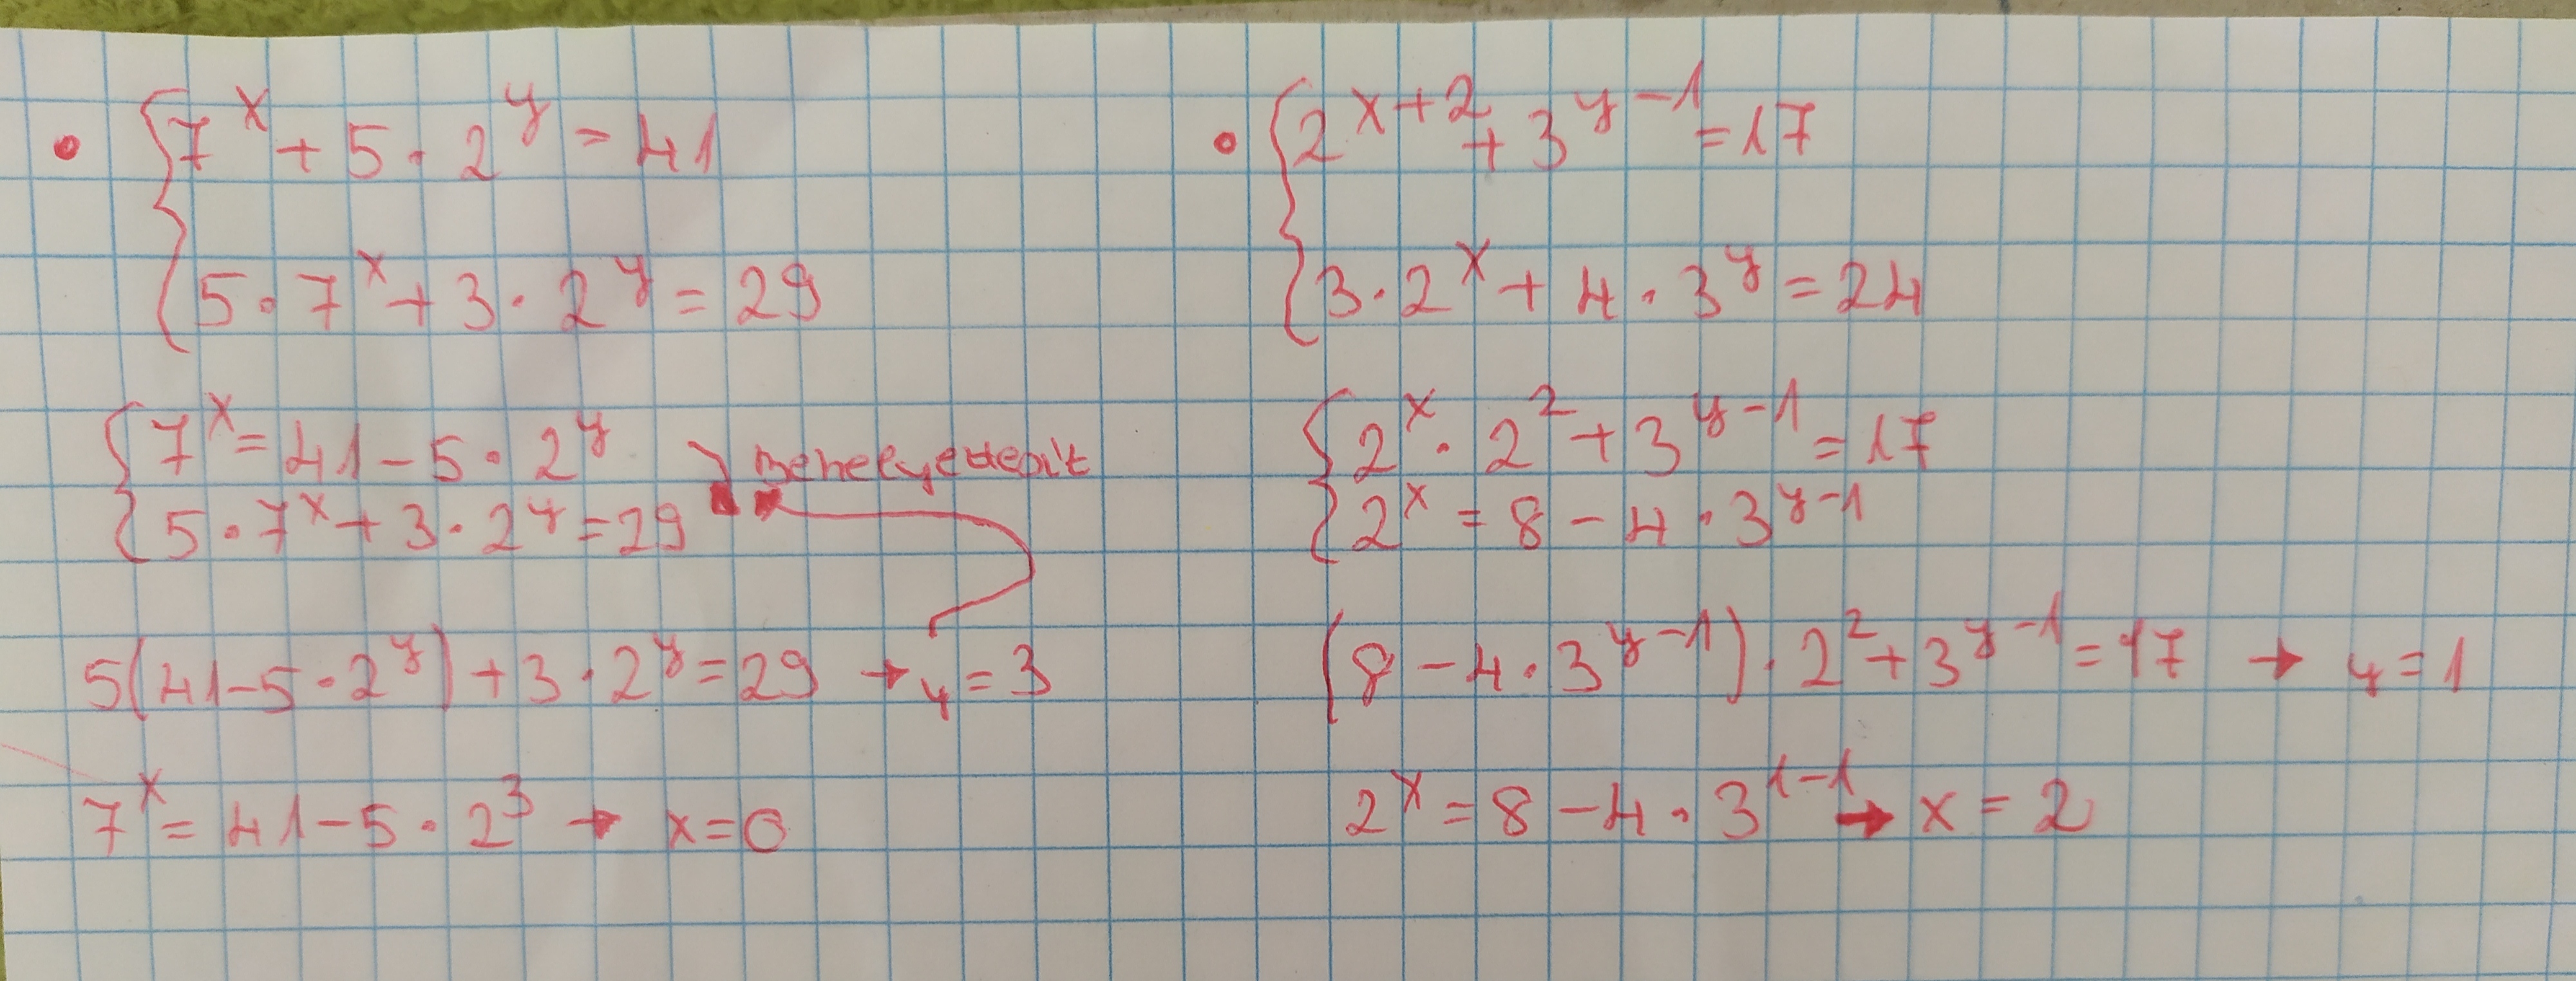 • { 7^x + 5 · 2^y = 41
5 · 7^x + 3 · 2^y = 29
{ 7^x = 41 - 5 · 2^y
behelyettesít
5 · 7^x + 3 · 2^y = 29
5(41 - 5 · 2^y) + 3 · 2^y = 29 → y = 3
7^x = 41 - 5 · 2^3 → x = 0
• { 2^{x+2} + 3^{y-1} = 17
3 · 2^x + 4 · 3^y = 24
{ 2^x · 2^2 + 3^{y-1} = 17
2^x = 8 - 4 · 3^{y-1}
(8 - 4 · 3^{y-1}) · 2^2 + 3^{y-1} = 17 → y = 1
2^x = 8 - 4 · 3^{1-1} → x = 2